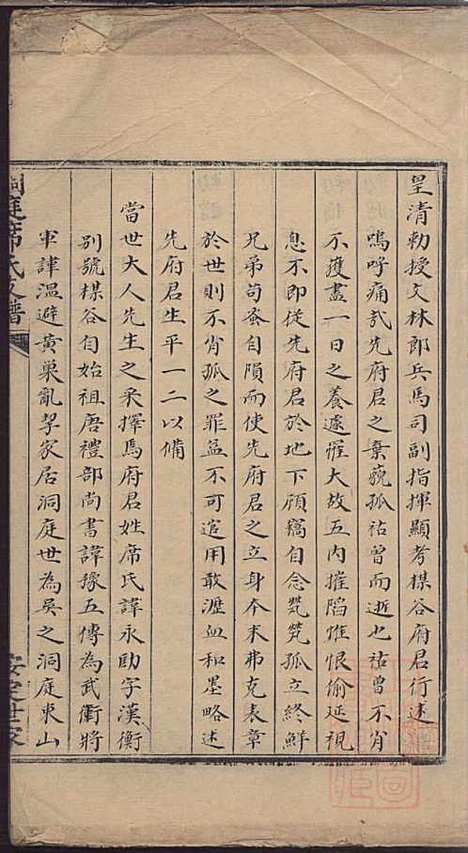 皇清勅授文林郎兵馬司副指揮顯考楳谷府君行述
嗚呼痛哉先府君之棄藐孤祜曾而逝也祜曾不肖
不獲盡一日之養遽罹大故五内摧䧟惟恨偷延視
息不即從先府君於地下顧竊自念煢煢孤立終鮮
兄弟苟奄自隕而使先府君之立身本末弗克表章
於世則不肖孤之罪益不可逭用敢瀝血和墨略述
先府君生平一二以備
當世大人先生之采擇焉府君姓席氏諱永勛字漢衡
別號楳谷自始祖唐禮部尚書諱豫五傳為武衛將
軍諱温避黄巢亂挈家居洞庭世為吳之洞庭東山
洞庭席氏支譜
安定世家